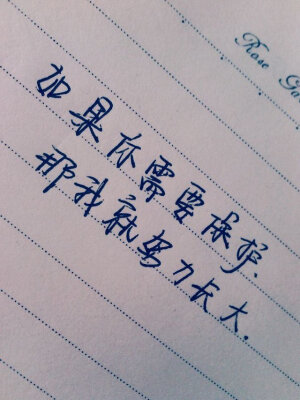 Rose Ga
如果你需要保护.
那我就努力长大.